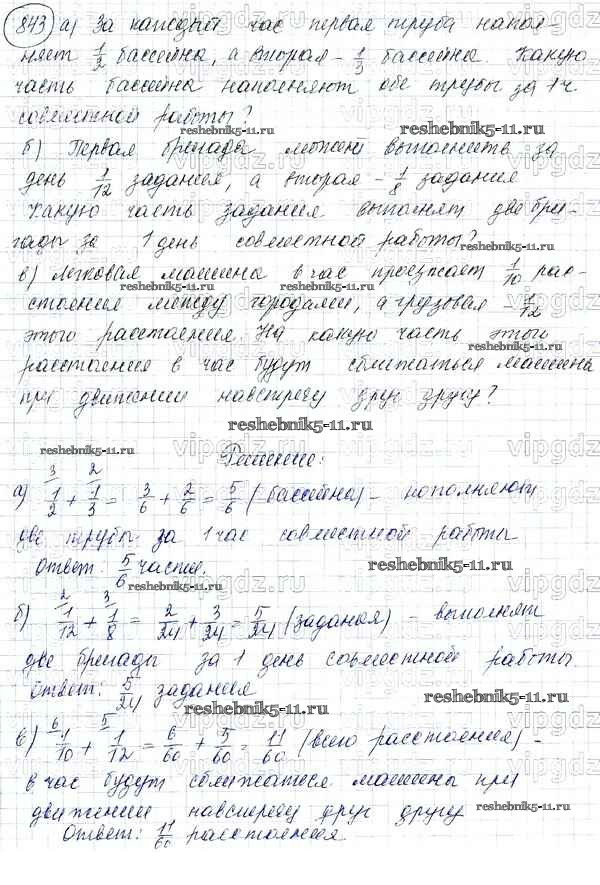 843 а) За каждый час первая труба напол-
няет 1/2 бассейна, а вторая - 1/3 бассейна. Какую
часть бассейна наполняют обе трубы за 1 ч.
совместной работы?
reshebnik5-11.ru reshebnik5-11.ru
б) Первая бригада может выполнить за
день 1/12 задания, а вторая - 1/8 задания
Какую часть задания выполнят две бри-
гады за 1 день совместной работы?
reshebnik5-11.ru reshebnik5-11.ru
в) Легковая машина в час проезжает 1/10 рас-
стояния между городами, а грузовая - 1/12
этого расстояния. На какую часть этого
reshebnik5-11.ru
расстояния в час будут сближаться машины
при движении навстречу друг другу?
reshebnik5-11.ru
reshebnik5-11.ru
Решение:
3 2
а) 1/2 + 1/3 = 3/6 + 2/6 = 5/6 (бассейна) - наполняют
две трубы за 1 час совместной работы
Ответ: 5/6 части.
reshebnik5-11.ru
reshebnik5-11.ru
2 3
б) 1/12 + 1/8 = 2/24 + 3/24 = 5/24 (задания) - выполнят
две бригады за 1 день совместной работы.
Ответ: 5/24 задания
reshebnik5-11.ru reshebnik5-11.ru
6 5
в) 1/10 + 1/12 = 6/60 + 5/60 = 11/60 (всего расстояния) -
в час будут сближатися машины при
движении навстречу друг другу
reshebnik5-11.ru
Ответ: 11/60 расстояния.
vipgdz.ru